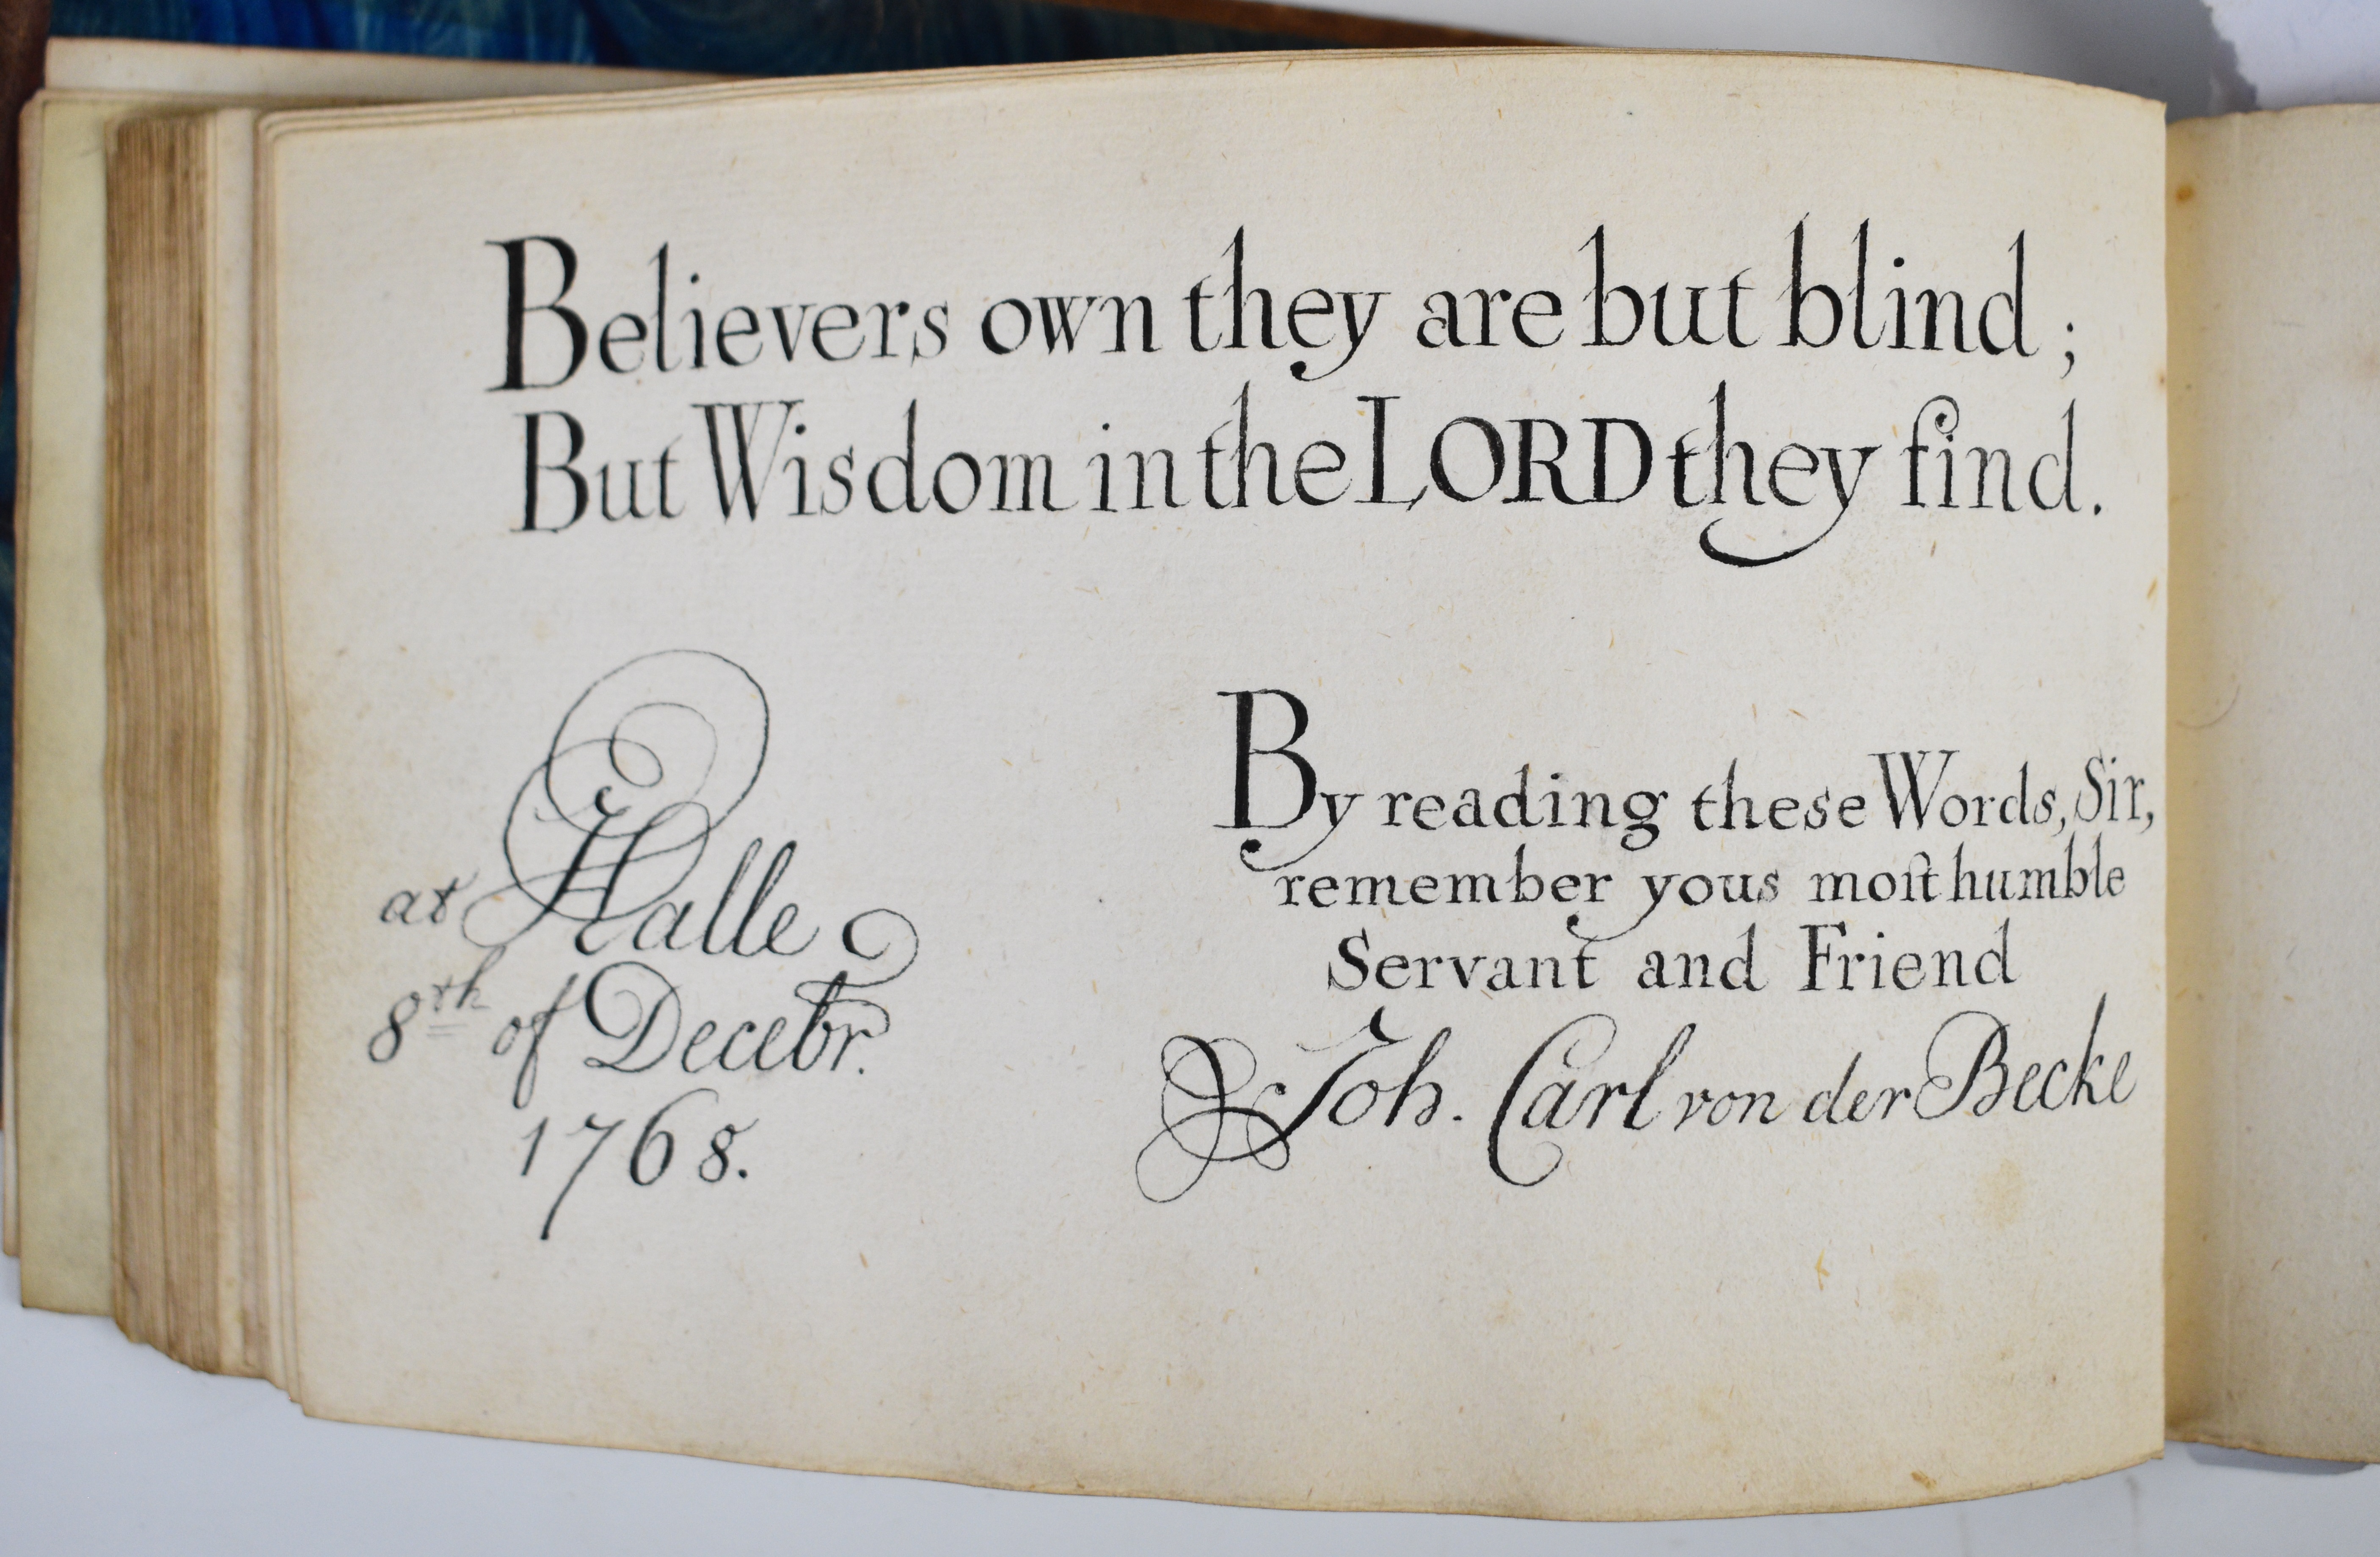 Believers own they are but blind;
But Wisdom in the LORD they find.
at Halle
8th of Decebr.
1768.
By reading these Words, Sir,
remember yous moſt humble
Servant and Friend
Joh. Carl von der Becke